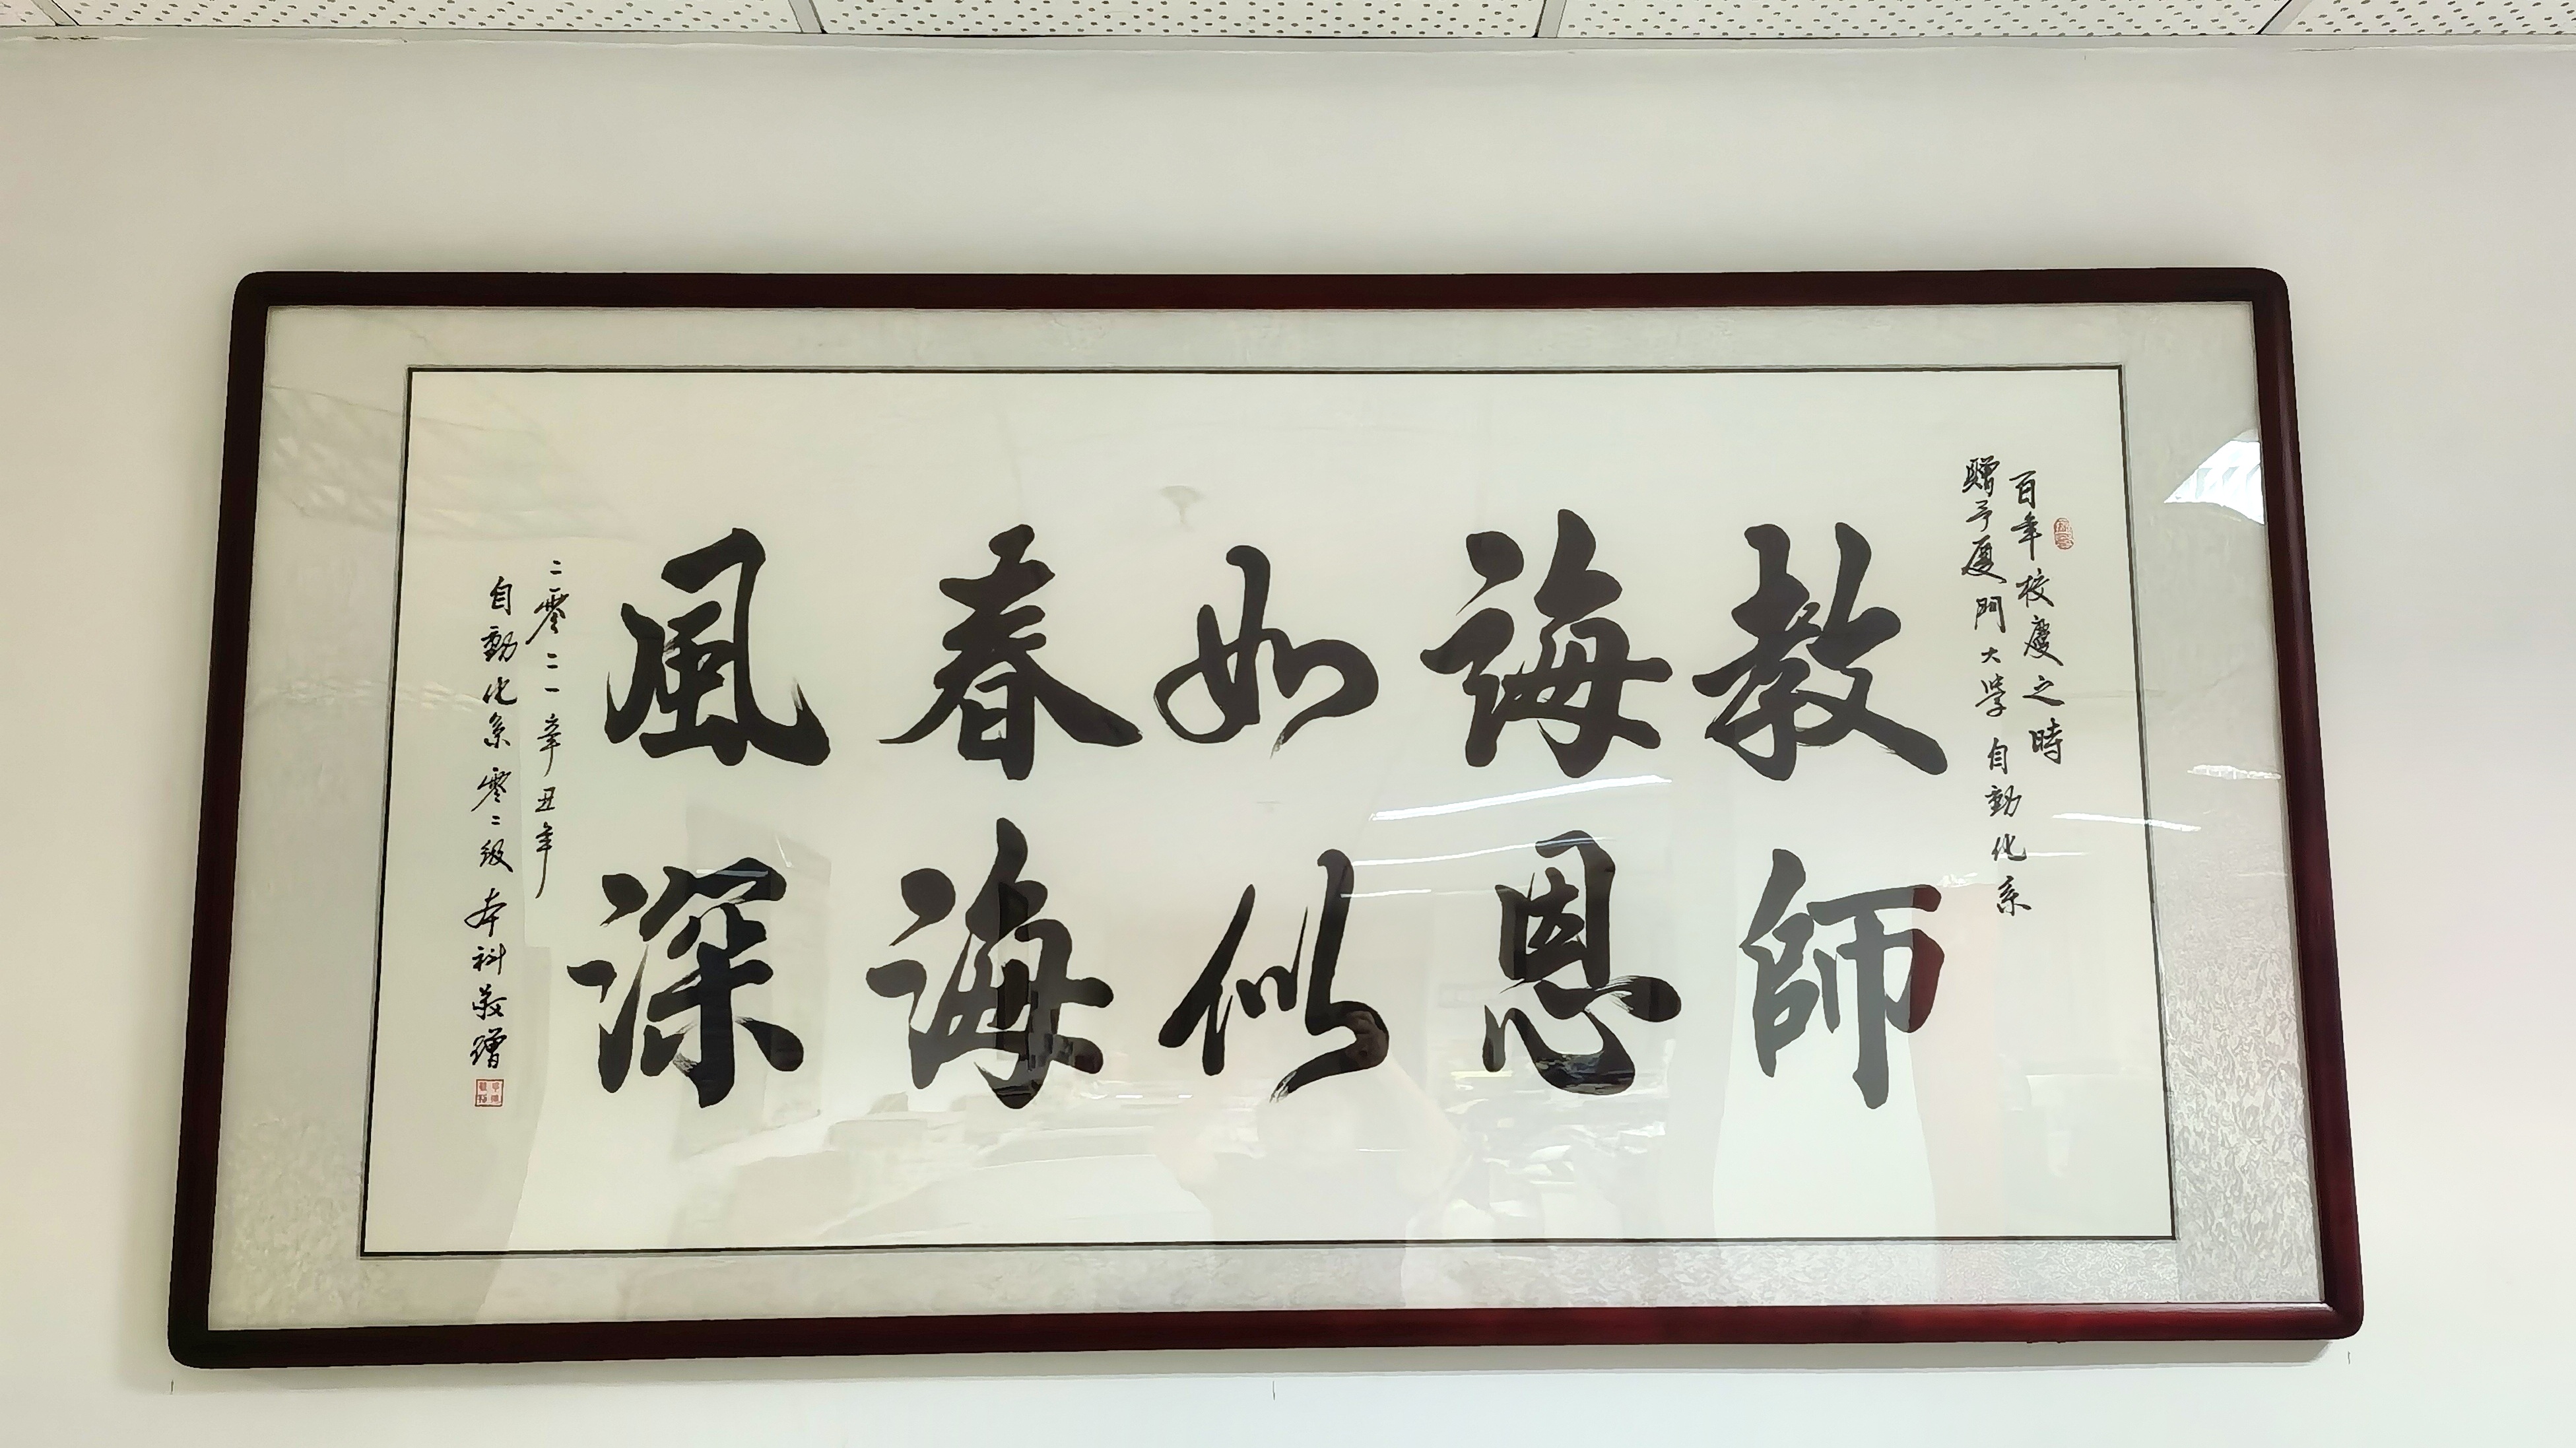 百年校慶之時
贈予厦門大學自動化系
教誨如春風
師恩似海深
二零二一辛丑年
自動化系零二級本科敬贈